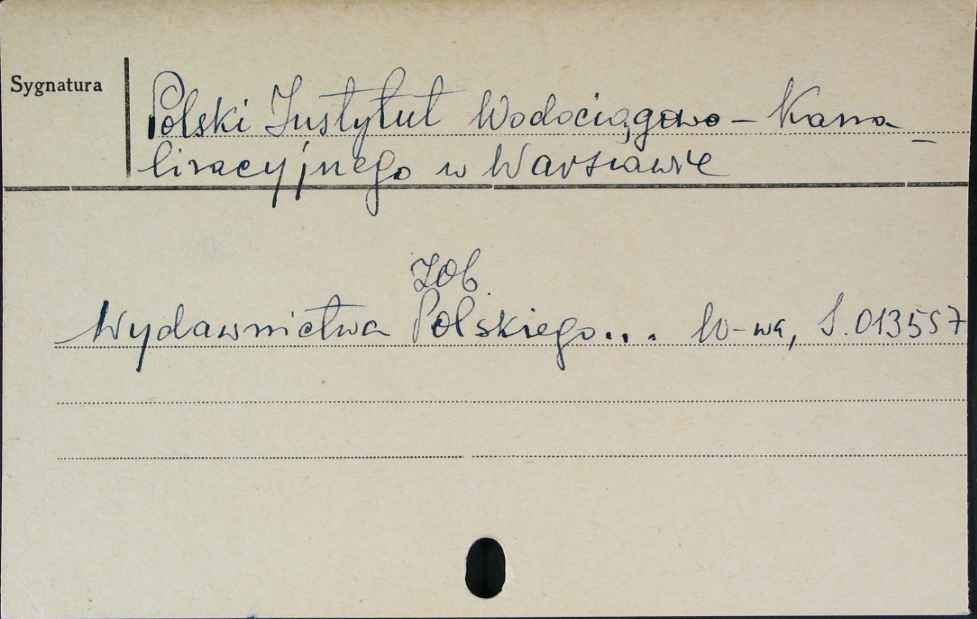 Sygnatura
Polski Instytut Wodociągowo - Kana-
lizacyjnego w Warszawie
Zob.
Wydawnictwa Polskiego... W-wa, S.013557